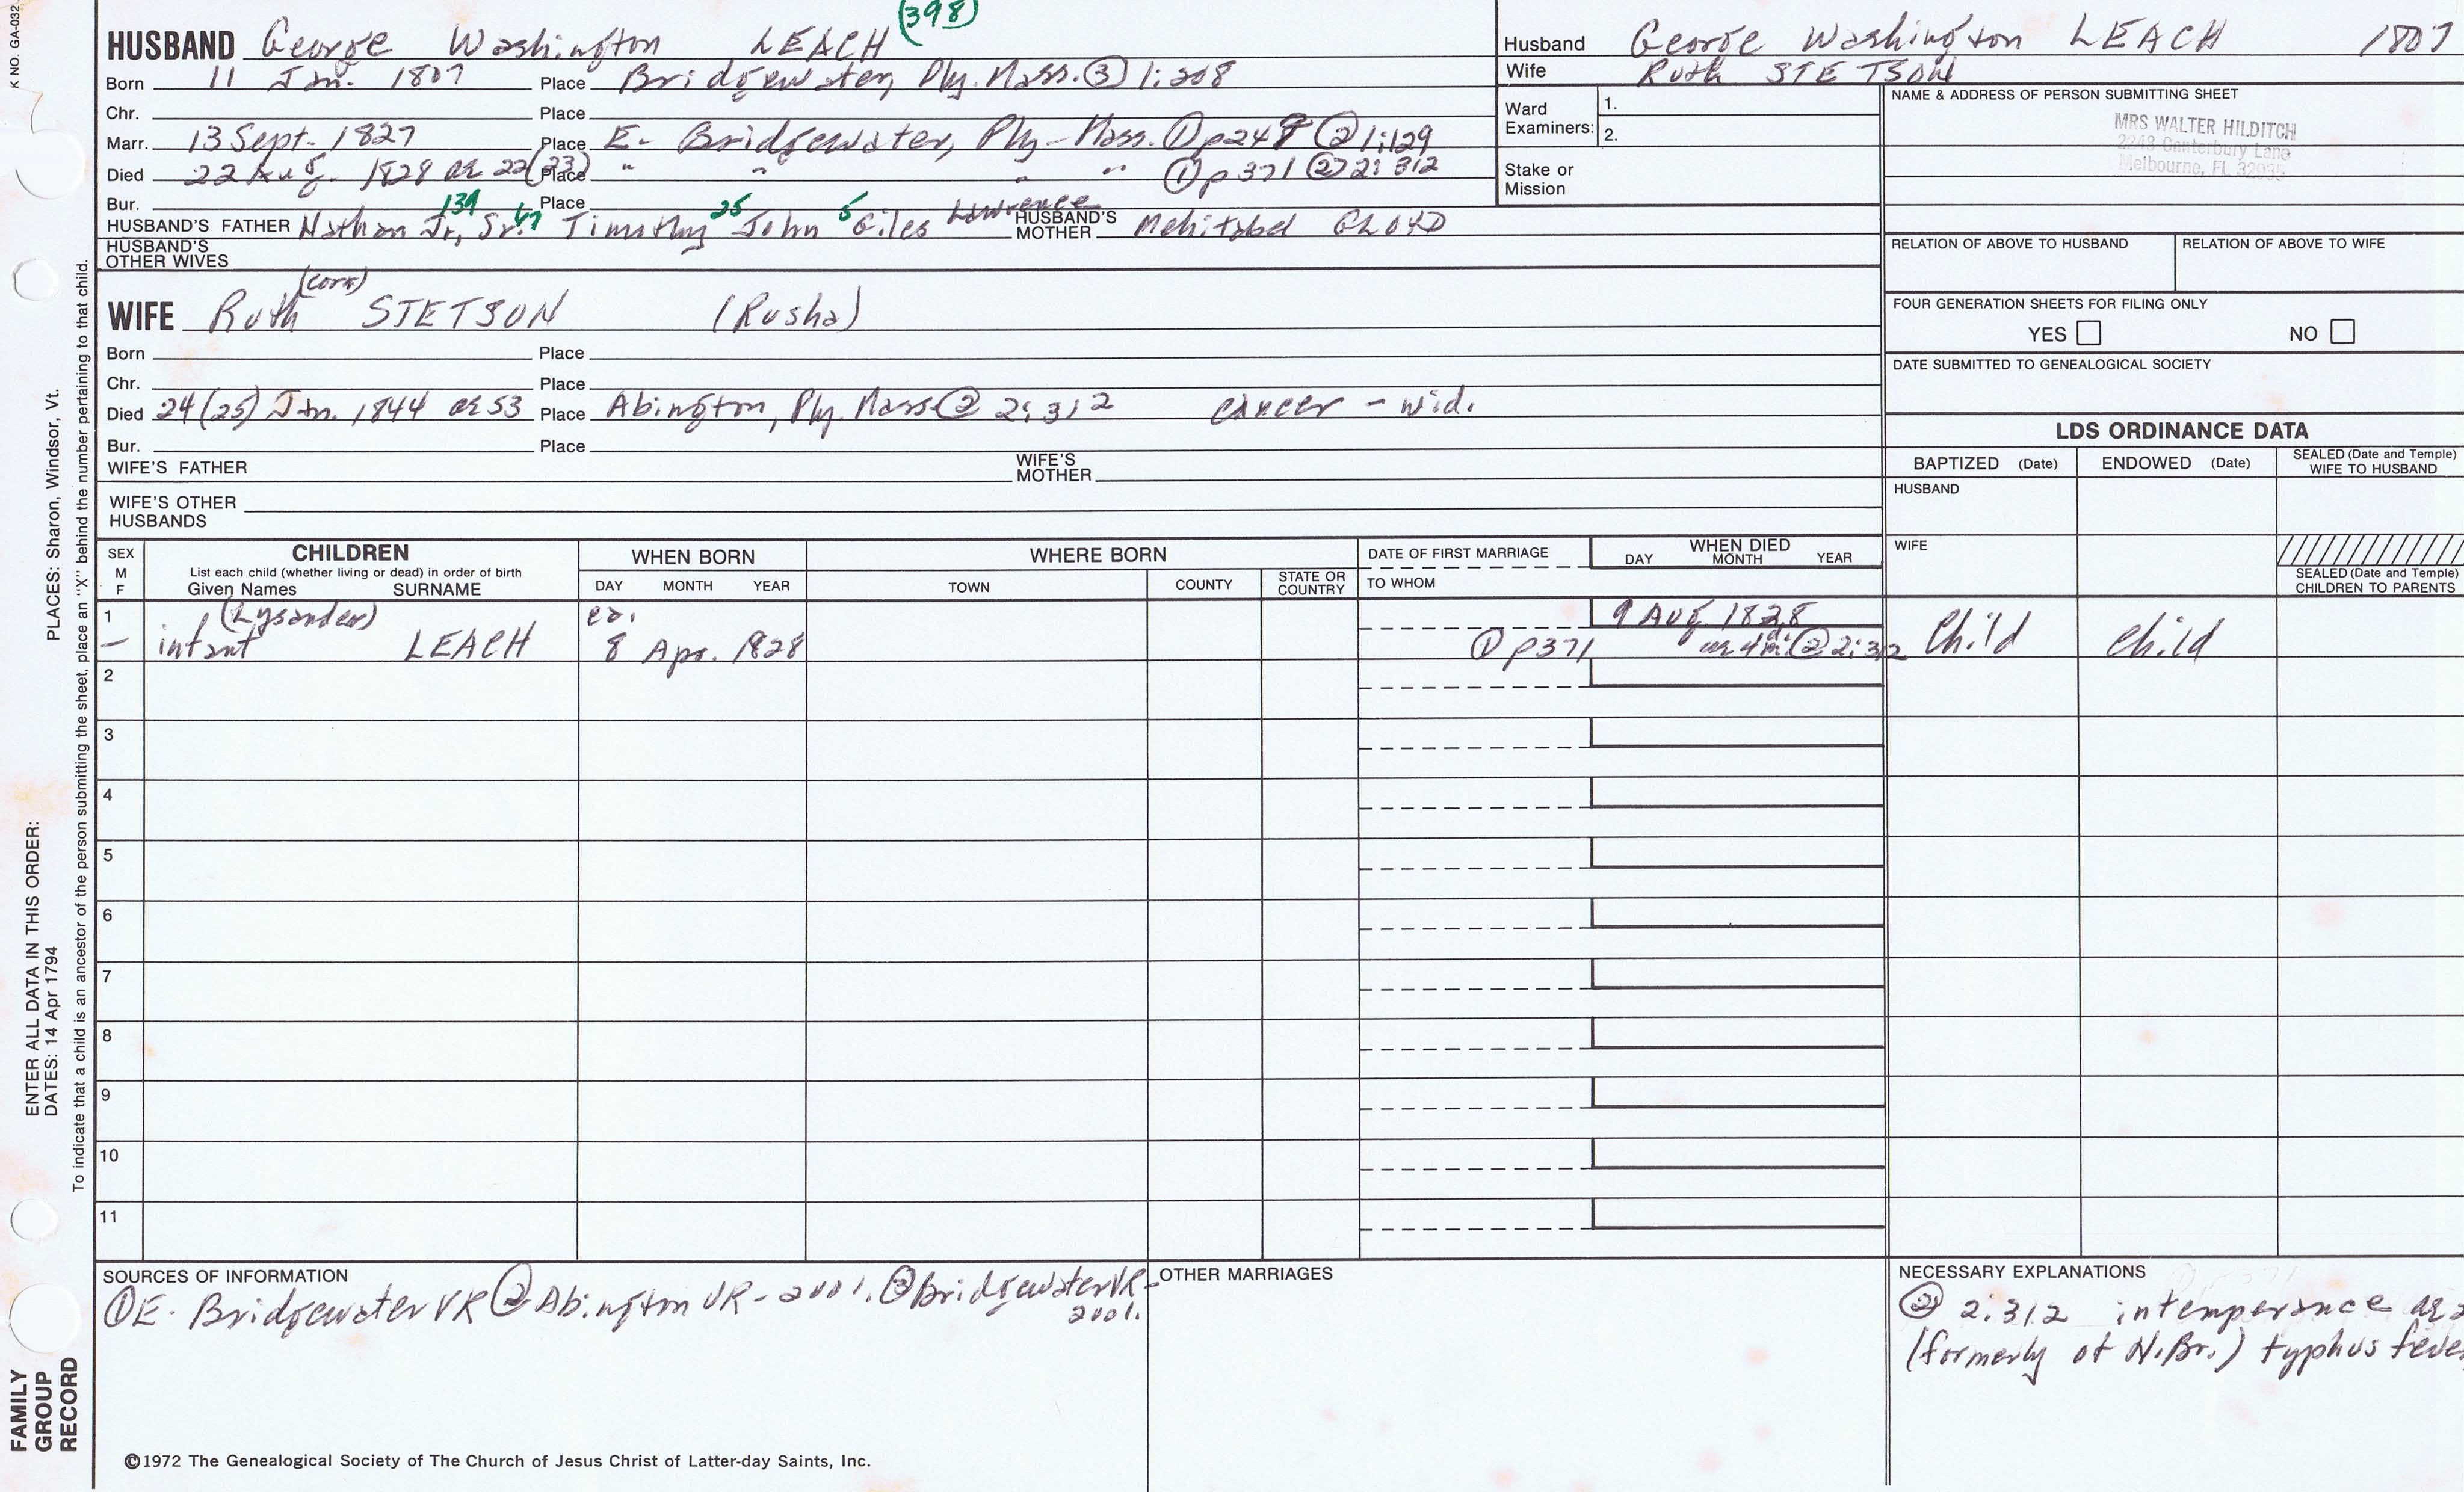 K NO. GA-032
(398)
HUSBAND George Washington LEACH
Born 11 Jan. 1807 Place Bridgewater, Ply. Mass. ③ 1:208
Chr. Place
Marr. 13 Sept. 1827 Place E. Bridgewater, Ply-Mass. ① p249 ② 1:129
Died 22 Aug. 1828 ae 22(23) Place " " " " ① p371 ② 2:312
Bur. Place
139 47 25 5 Lawrence
HUSBAND'S FATHER Nathan Jr., Sr. Timothy John Giles HUSBAND'S MOTHER Mehitabel GLOYD
HUSBAND'S OTHER WIVES
(corn)
WIFE Ruth STETSON (Rusha)
Born Place
Chr. Place
Died 24(25) Jan. 1844 ae 53 Place Abington, Ply. Mass ② 2:312 cancer - wid.
Bur. Place
WIFE'S FATHER WIFE'S MOTHER
WIFE'S OTHER HUSBANDS
Husband George Washington LEACH 1807
Wife Ruth STETSON
Ward Examiners: 1.
2.
Stake or Mission
NAME & ADDRESS OF PERSON SUBMITTING SHEET
MRS WALTER HILDITCH
2243 Canterbury Lane
Melbourne, FL 32935
RELATION OF ABOVE TO HUSBAND RELATION OF ABOVE TO WIFE
FOUR GENERATION SHEETS FOR FILING ONLY
YES NO
DATE SUBMITTED TO GENEALOGICAL SOCIETY
LDS ORDINANCE DATA
BAPTIZED (Date) ENDOWED (Date) SEALED (Date and Temple) WIFE TO HUSBAND
HUSBAND
WIFE
SEALED (Date and Temple) CHILDREN TO PARENTS
SEX M F
CHILDREN
List each child (whether living or dead) in order of birth
Given Names SURNAME
WHEN BORN
DAY MONTH YEAR
WHERE BORN
TOWN COUNTY STATE OR COUNTRY
DATE OF FIRST MARRIAGE
TO WHOM
WHEN DIED
DAY MONTH YEAR
1 (Lysander) ca. 9 Aug. 1828
– infant LEACH 8 Apr. 1828 ① p371 ae 4m. ② 2:312 Child child
2
3
4
5
6
7
8
9
10
11
SOURCES OF INFORMATION
① E. Bridgewater VR ② Abington VR - 2001. ③ Bridgewater VR - 2001.
OTHER MARRIAGES
NECESSARY EXPLANATIONS
② 2:312 intemperance ae 2
(formerly of N.Br.) typhus feve
©1972 The Genealogical Society of The Church of Jesus Christ of Latter-day Saints, Inc.
FAMILY GROUP RECORD
ENTER ALL DATA IN THIS ORDER:
DATES: 14 Apr 1794
PLACES: Sharon, Windsor, Vt.
To indicate that a child is an ancestor of the person submitting the sheet, place an "X" behind the number pertaining to that child.